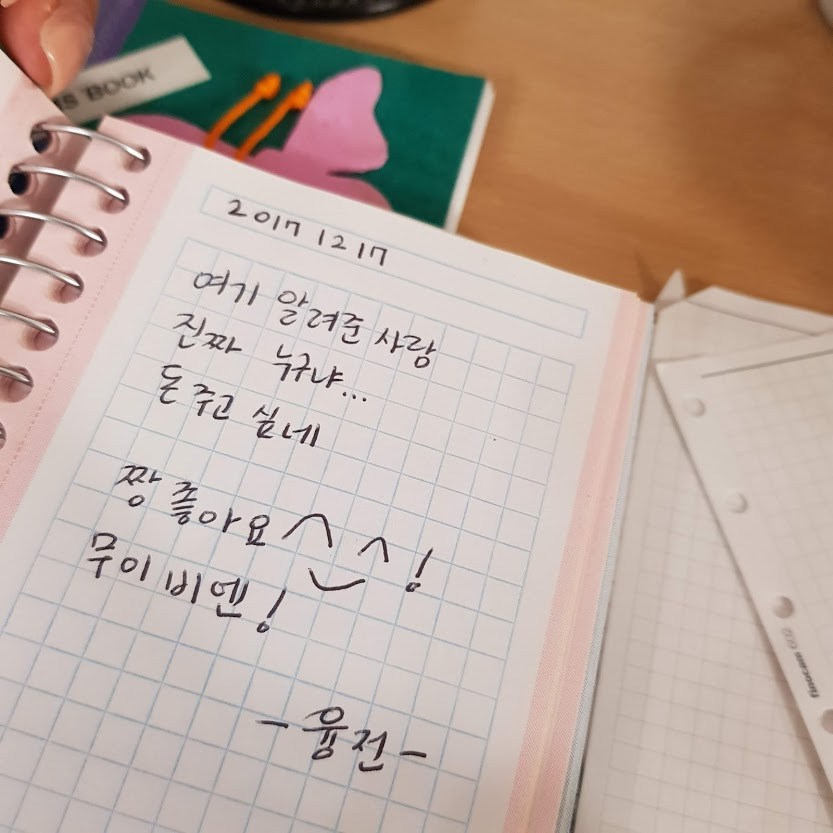 BOOK
2017 12 17
여기 알려준 사람
진짜 누구냐...
돈 주고 싶네
짱 좋아요 ^^!
무이 비엔!
- 융전 -
finocam